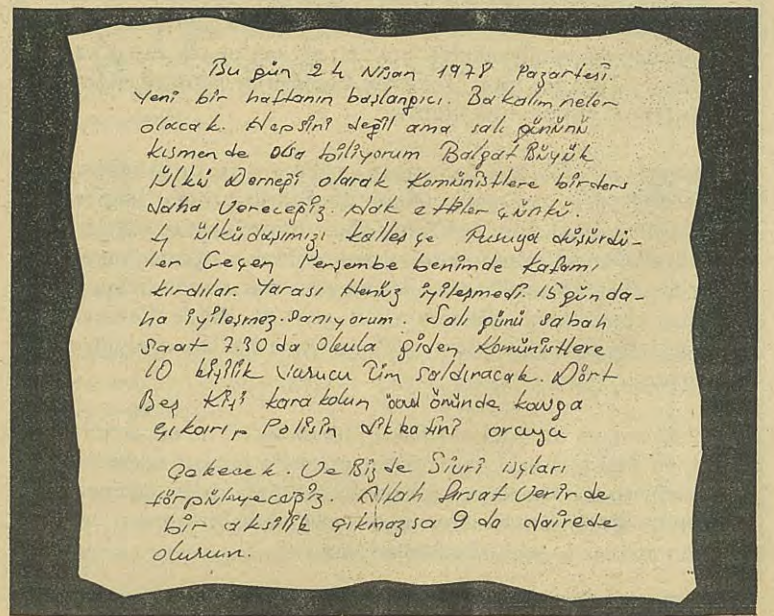 Bu gün 24 Nisan 1978 Pazartesi.
Yeni bir haftanın başlangıcı. Bakalım neler
olacak. Hepsini değil ama salı gününü
kısmen de olsa biliyorum Balgat Büyük
Ülkü Derneği olarak Komünistlere birders
daha Vereceğiz. Hak ettiler çünkü.
4 ülküdaşımızı kalleşçe Pusuya düşürdü-
ler Geçen Perşembe benimde Kafamı
kırdılar. Yarası Henüz iyileşmedi. 15 günda-
ha iyileşmez. sanıyorum. Salı günü sabah
Saat 7.30 da Okula giden Komünistlere
10 kişilik Vurucu Tim saldıracak. Dört
Beş Kişi karakolun önünde kavga
çıkarıp Polisin dikkatini oraya
Çekecek. Ve Bizde Sivri
törpüleyeceğiz. Allah fırsat Verirde
bir aksilik çıkmazsa 9 da dairede
olurum.